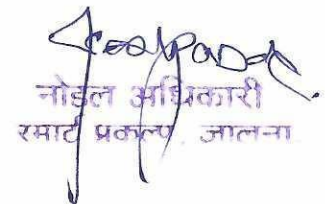 नोडल अधिकारी
स्मार्ट प्रकल्प, जालना